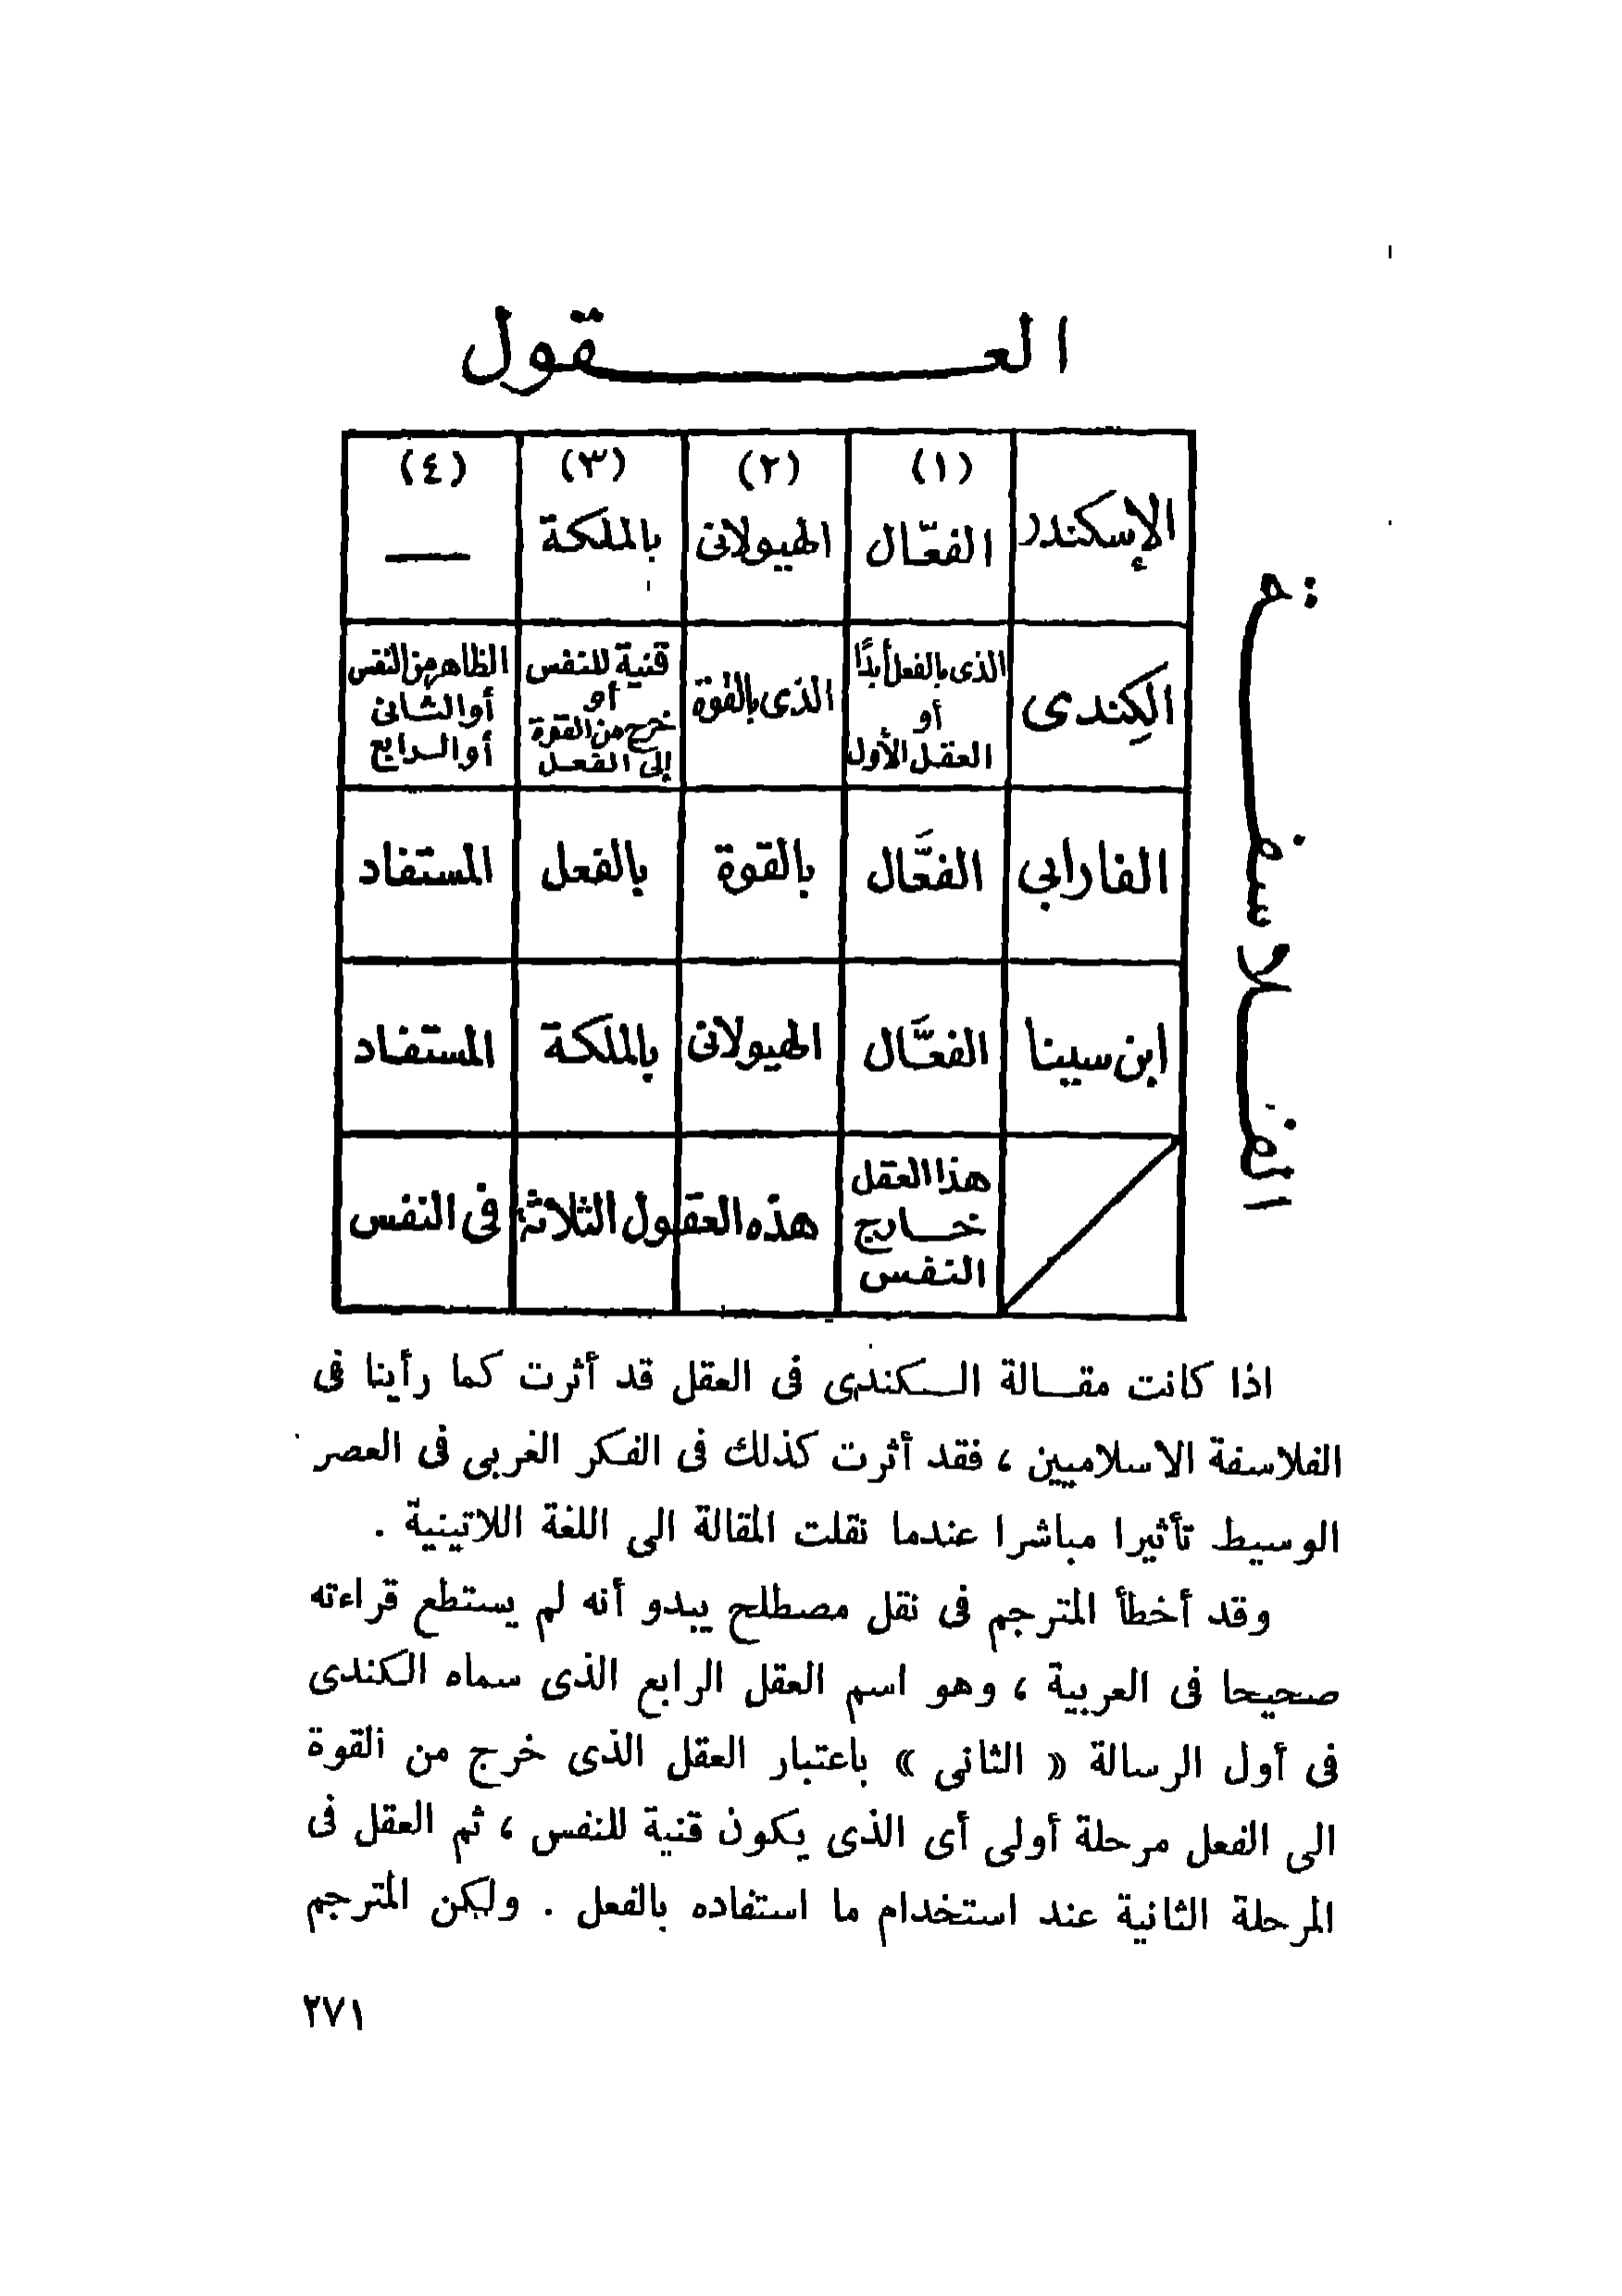 العقول
(١) (٢) (٣) (٤)
الإسكندر الفعّال الهيولانى بالملكة —
الكِندى الذى بالفعل أبدًا أو العقل الأول الذى بالقوة قنية للنفس أو خرج من القوة إلى الفعل الظاهر من النفس أو الثانى أو الرابع
الفارابي الفعَّال بالقوة بالفعل المستفاد
ابن سينا الفعَّال الهيولانى بالملكة المستفاد
هذا العقل خارج النفس هذه العقول الثلاثة فى النفس
الفلاسفة
اذا كانت مقالة الكندى فى العقل قد أثرت كما رأينا فى
الفلاسفة الاسلاميين ، فقد أثرت كذلك فى الفكر الغربى فى العصر
الوسيط تأثيرا مباشرا عندما نقلت المقالة الى اللغة اللاتينية .
وقد أخطأ المترجم فى نقل مصطلح يبدو أنه لم يستطع قراءته
صحيحا فى العربية ، وهو اسم العقل الرابع الذى سماه الكندى
فى أول الرسالة « الثانى » باعتبار العقل الذى خرج من القوة
الى الفعل مرحلة أولى أى الذى يكون قنية للنفس ، ثم العقل فى
المرحلة الثانية عند استخدام ما استفاده بالفعل . ولكن المترجم
٢٧١